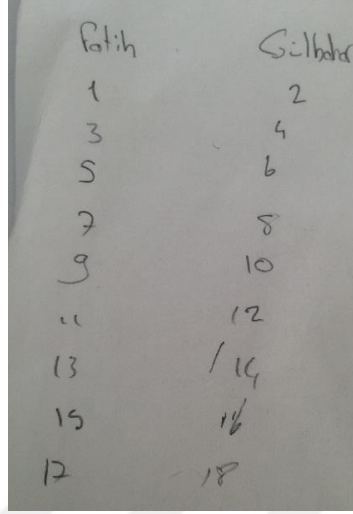 Fatih Gülbahar
1 2
3 4
5 6
7 8
9 10
11 12
13 / 14
15 16
17 18